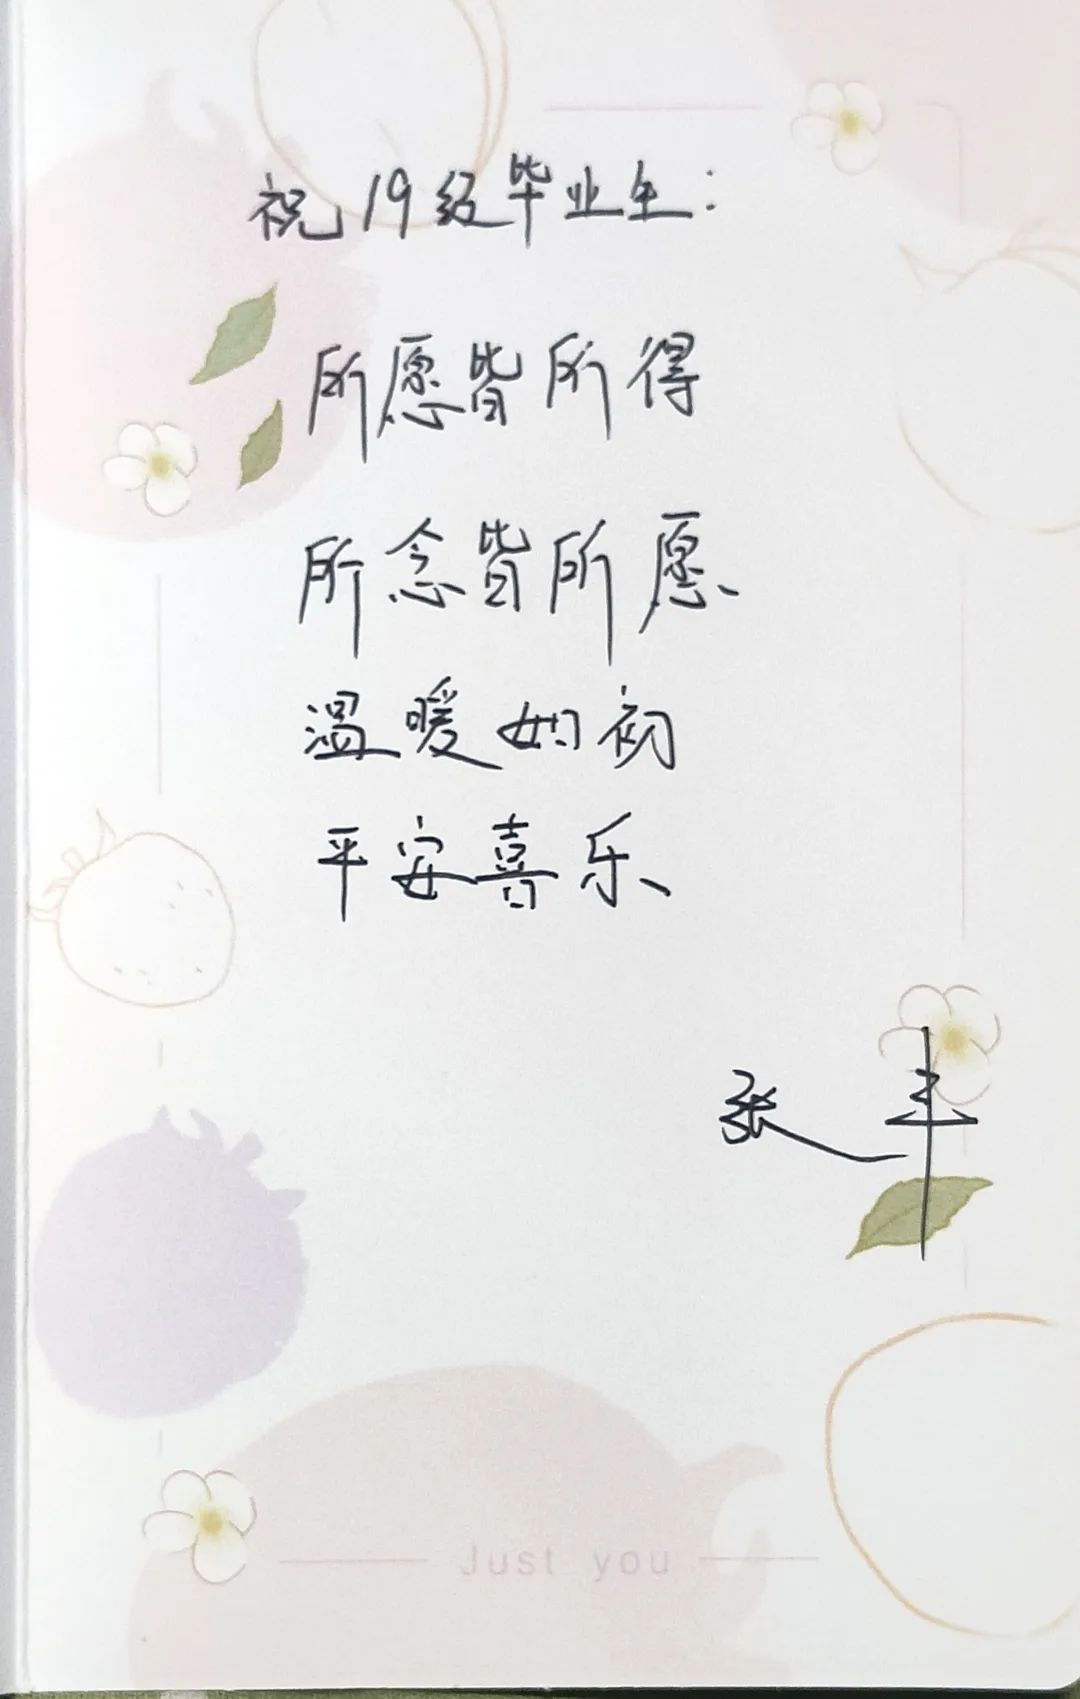 祝19级毕业生：
所愿皆所得
所念皆所愿
温暖如初
平安喜乐
张
Just you